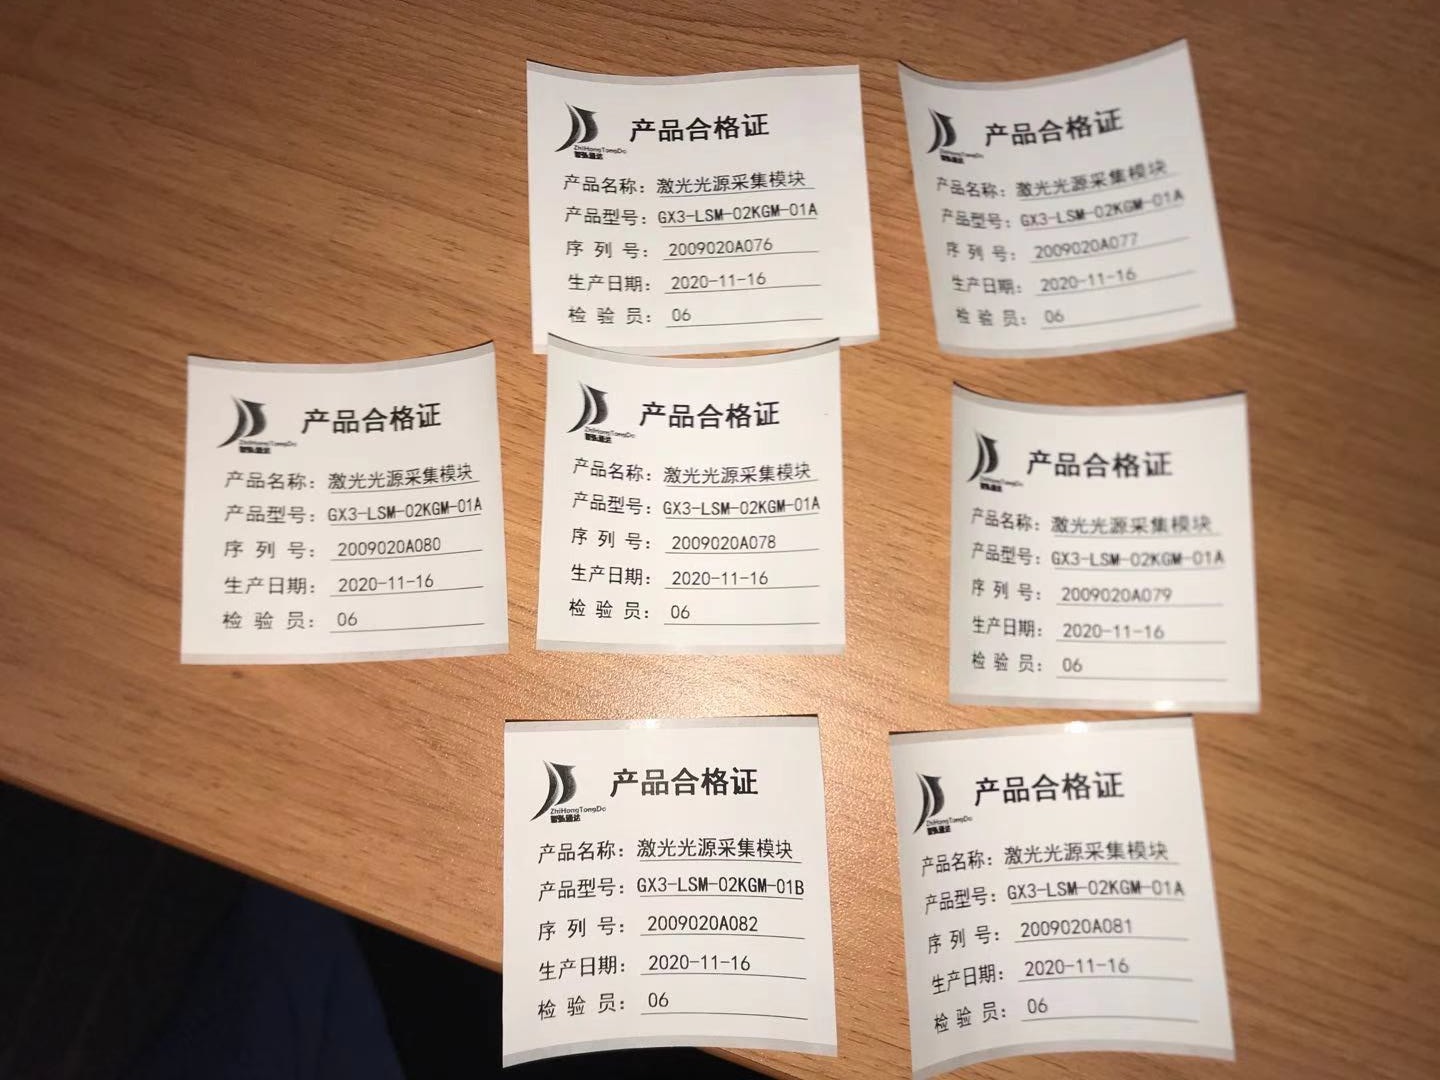 ZhiHongTongDa
智弘通达
产品合格证
产品名称：激光光源采集模块
产品型号：GX3-LSM-02KGM-01A
序 列 号：2009020A076
生产日期：2020-11-16
检 验 员：06
ZhiHongTongDa
智弘通达
产品合格证
产品名称：激光光源采集模块
产品型号：GX3-LSM-02KGM-01A
序 列 号：2009020A077
生产日期：2020-11-16
检 验 员：06
ZhiHongTongDa
智弘通达
产品合格证
产品名称：激光光源采集模块
产品型号：GX3-LSM-02KGM-01A
序 列 号：2009020A080
生产日期：2020-11-16
检 验 员：06
ZhiHongTongDa
智弘通达
产品合格证
产品名称：激光光源采集模块
产品型号：GX3-LSM-02KGM-01A
序 列 号：2009020A078
生产日期：2020-11-16
检 验 员：06
ZhiHongTongDa
智弘通达
产品合格证
产品名称：激光光源采集模块
产品型号：GX3-LSM-02KGM-01A
序 列 号：2009020A079
生产日期：2020-11-16
检 验 员：06
ZhiHongTongDa
智弘通达
产品合格证
产品名称：激光光源采集模块
产品型号：GX3-LSM-02KGM-01B
序 列 号：2009020A082
生产日期：2020-11-16
检 验 员：06
ZhiHongTongDa
智弘通达
产品合格证
产品名称：激光光源采集模块
产品型号：GX3-LSM-02KGM-01A
序 列 号：2009020A081
生产日期：2020-11-16
检 验 员：06